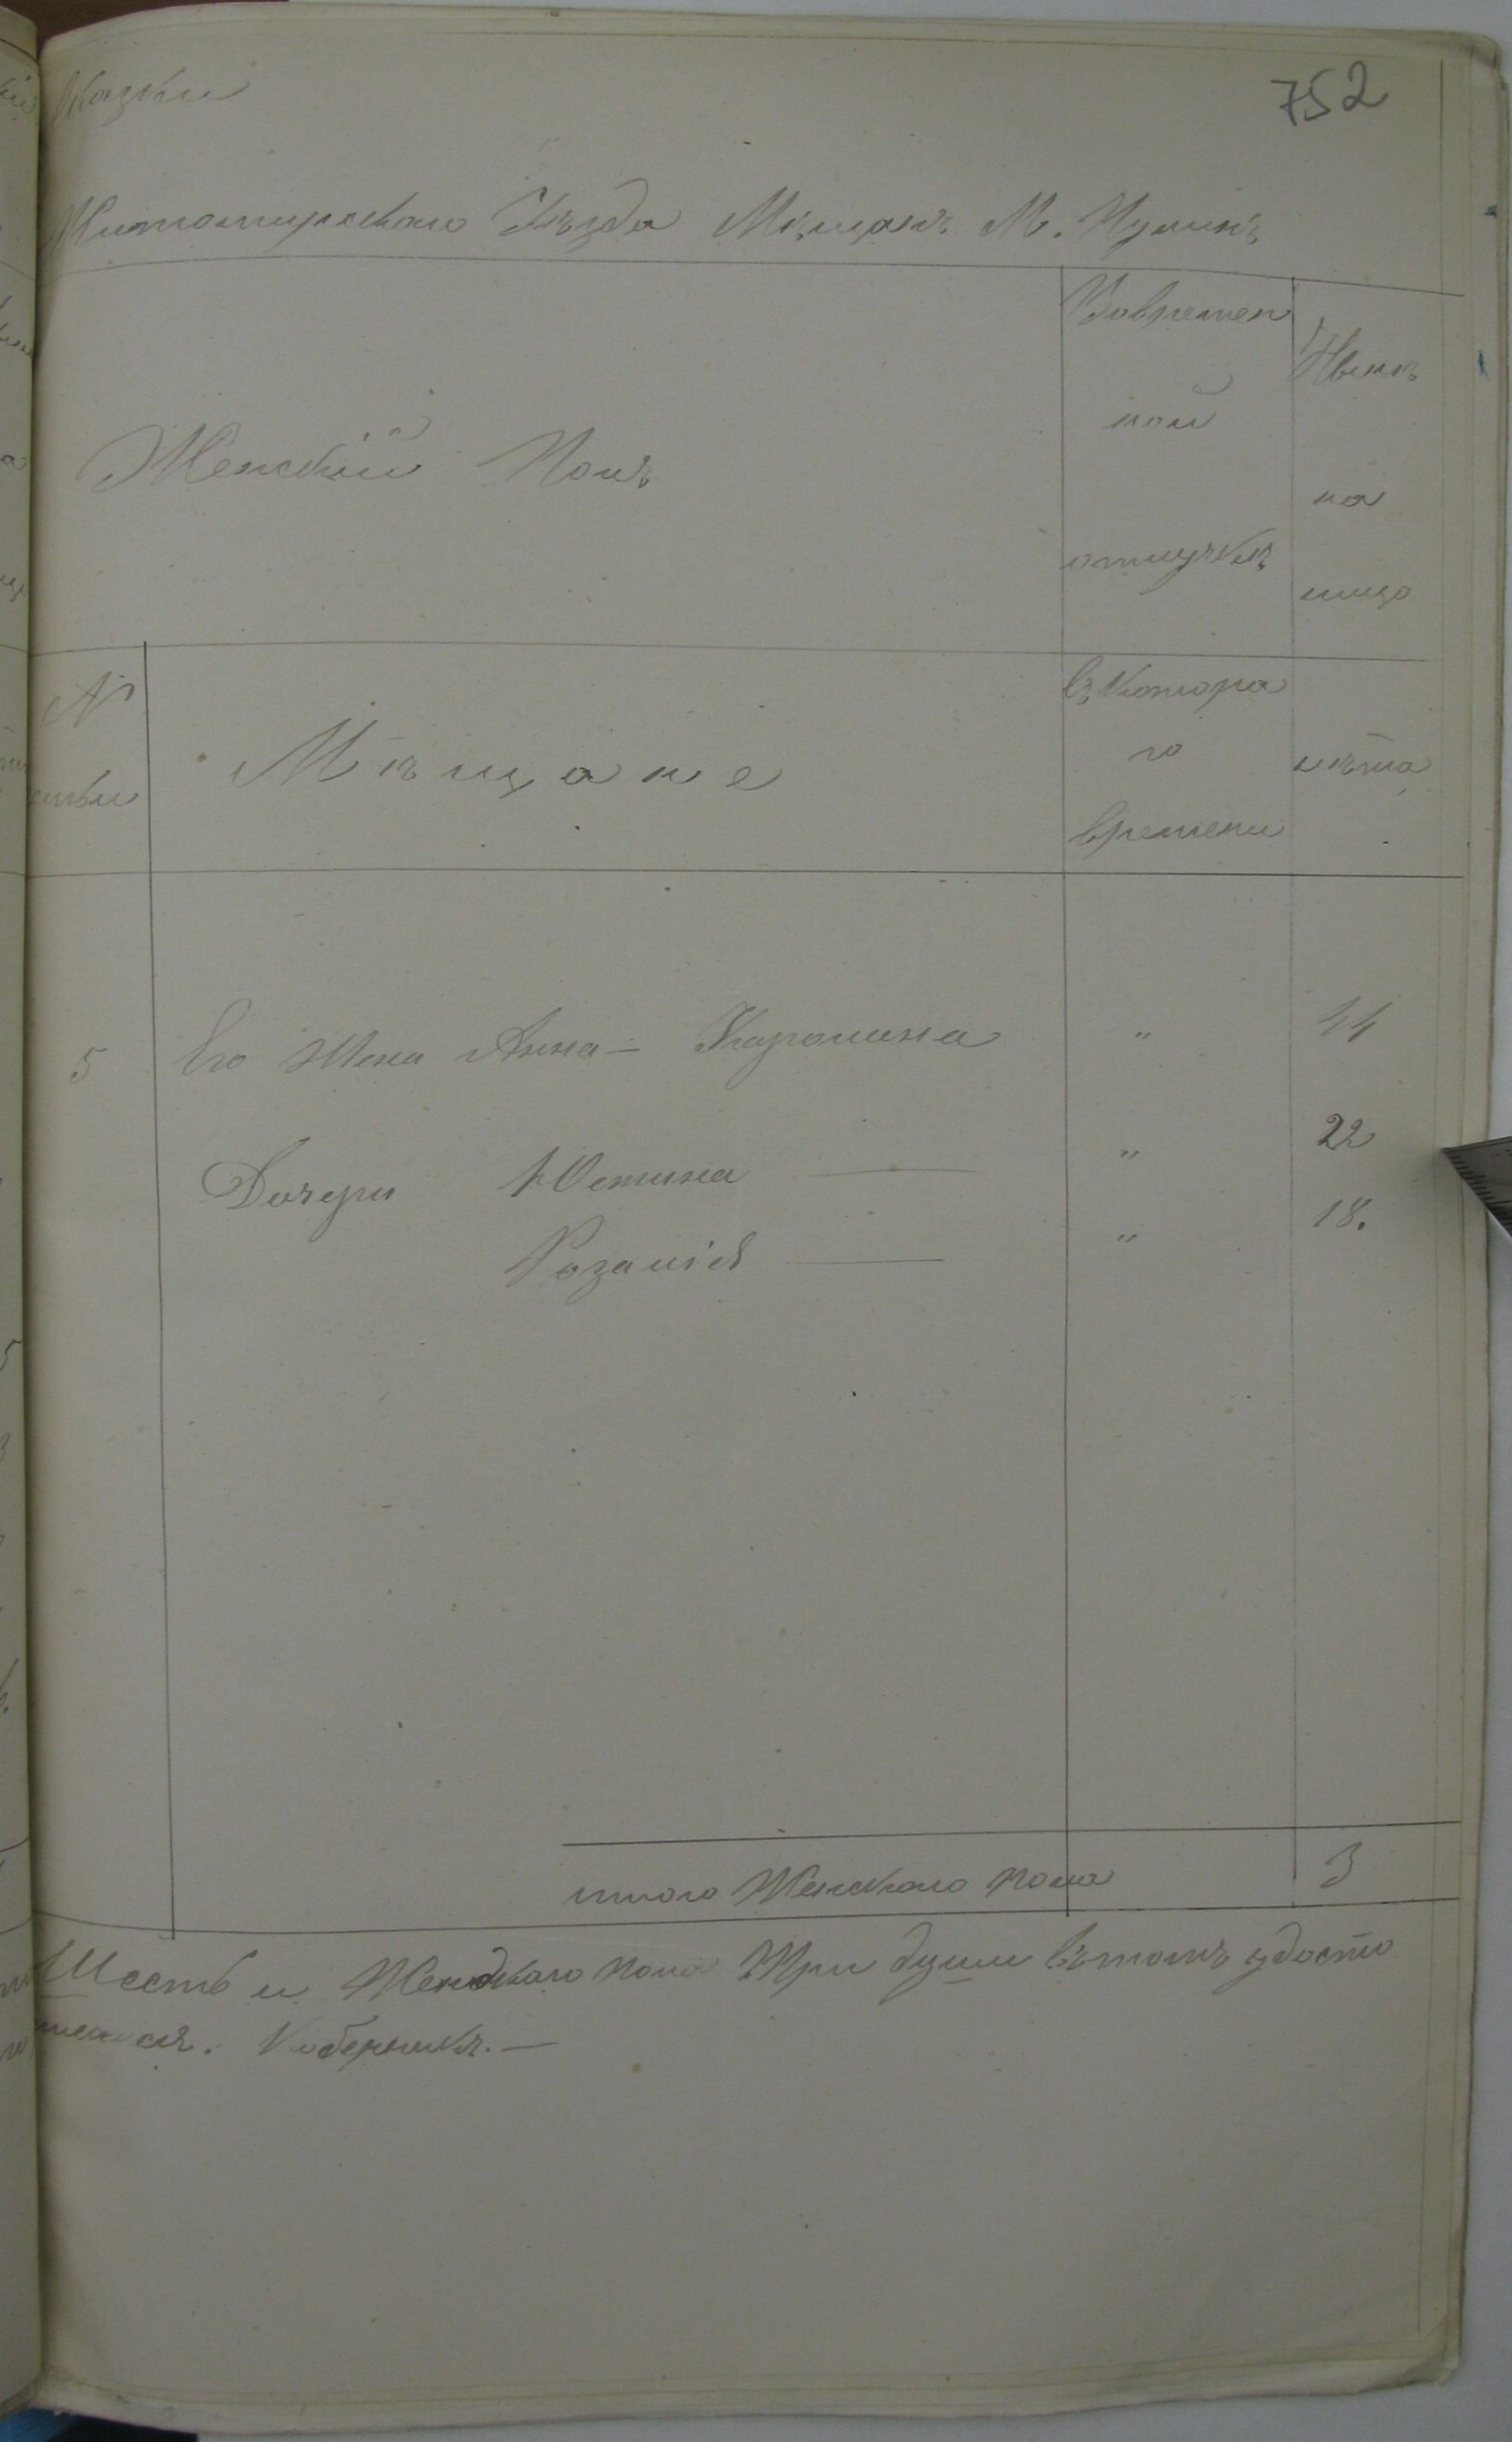 752
Сказки
Житомирскаго Уѣзда Мѣщанъ М. Пулинъ
Женскій Полъ
Вовремен
ной
отлучкѣ
Нынѣ
на
лицо
№
семьи
Мѣщане
Съ Котора
го
времени
лѣта
5 Его Жена Анна - Каролина " 44
Дочери Юстина — " 22
Розалія — " 18.
итого Женскаго пола 3
Шесть и Женскаго пола Три души вътомъ удосто
ся. Коберникъ. —